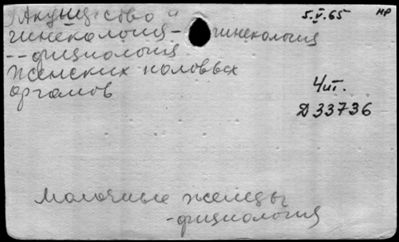 Акушерство и
5.V.65
нр
гинекология - гинекология
-- физиология
женских половых
органов
Чит.
D 33736
Молочные железы
- физиология